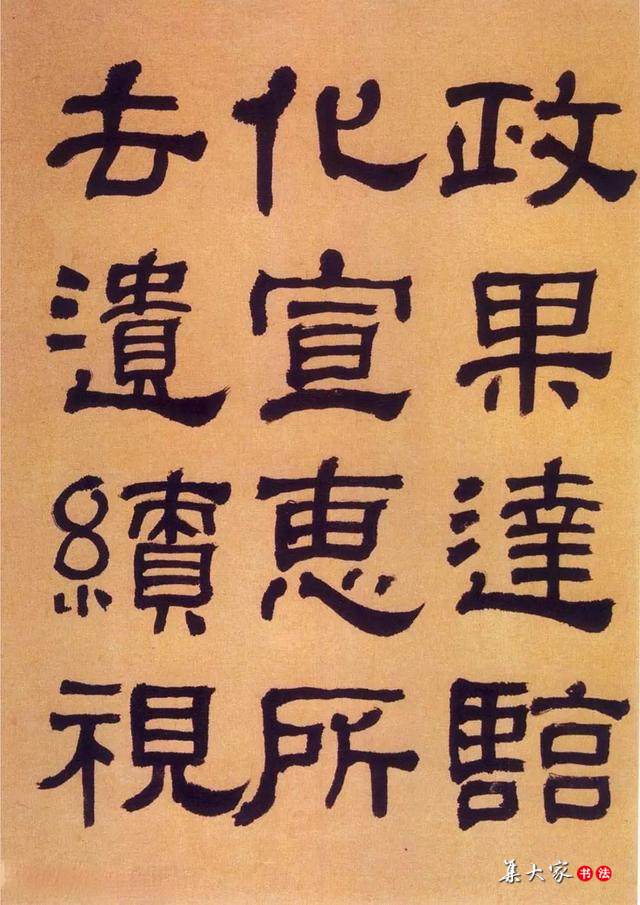 政果達臨
化宣惠所
去遺績視
集大家书法